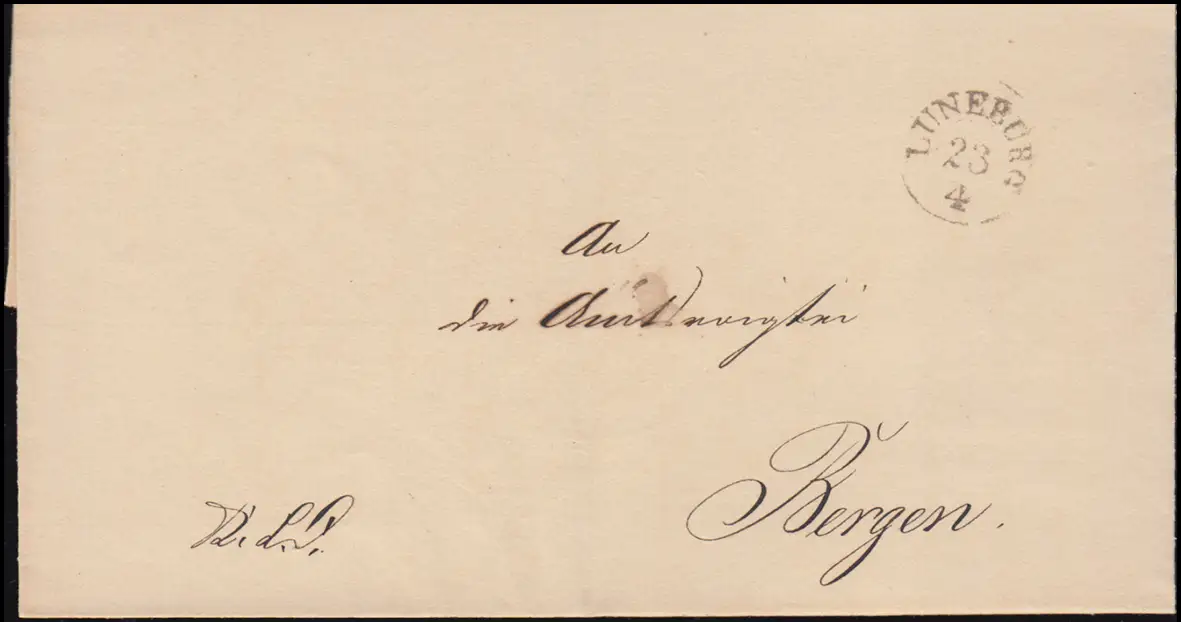 LUNEBURG
23
4
An
die Amtsvoigtei
Bergen.